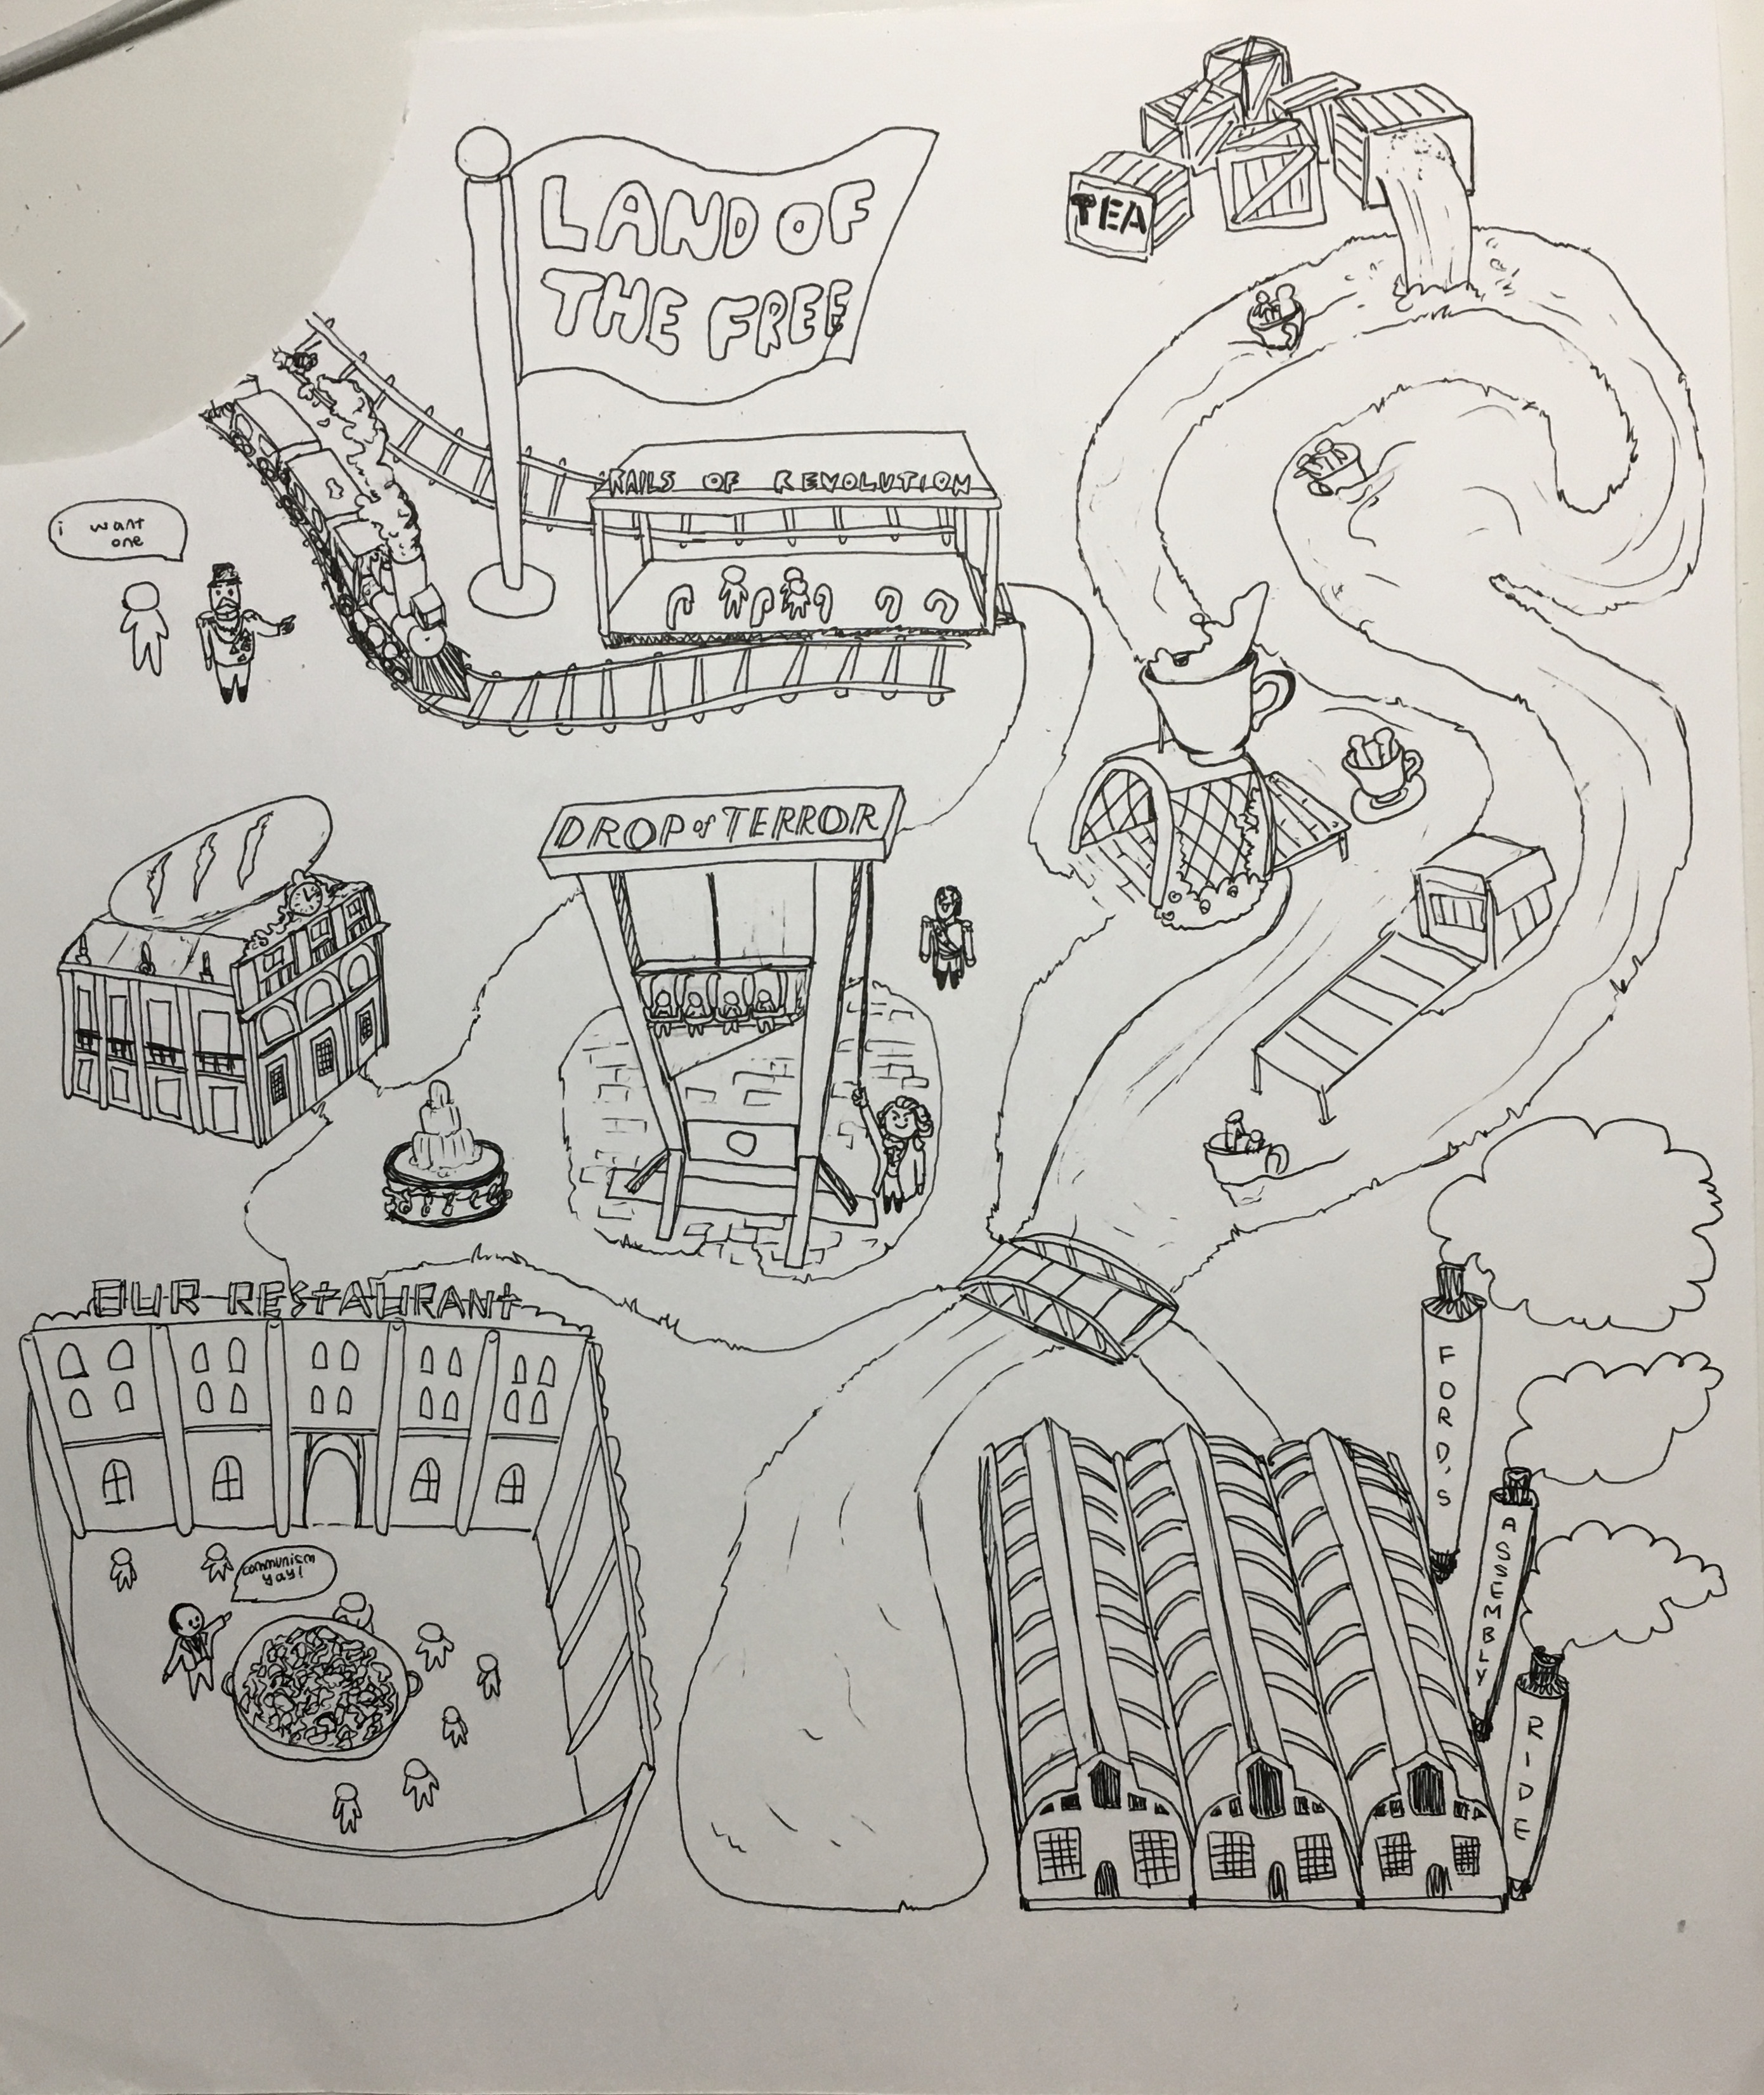 LAND OF
THE FREE
TEA
RAILS OF REVOLUTION
i want
one
DROP of TERROR
OUR RESTAURANT
communism
yay!
FORD'S
ASSEMBLY
RIDE